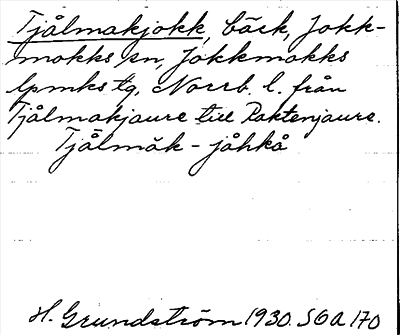 Tjålmakjokk, bäck, Jokk-
mokks sn, Jokkmokks
lpmks tg, Norrb. l. från
Tjålmakjaure till Paktenjaure.
Tjålmăk - jåhkå
H. Grundström 1930 SOA 170